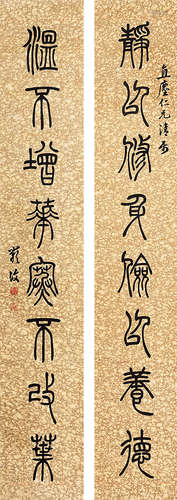 靜以修身儉以養德
仁兄清
溫不增華寒不改葉